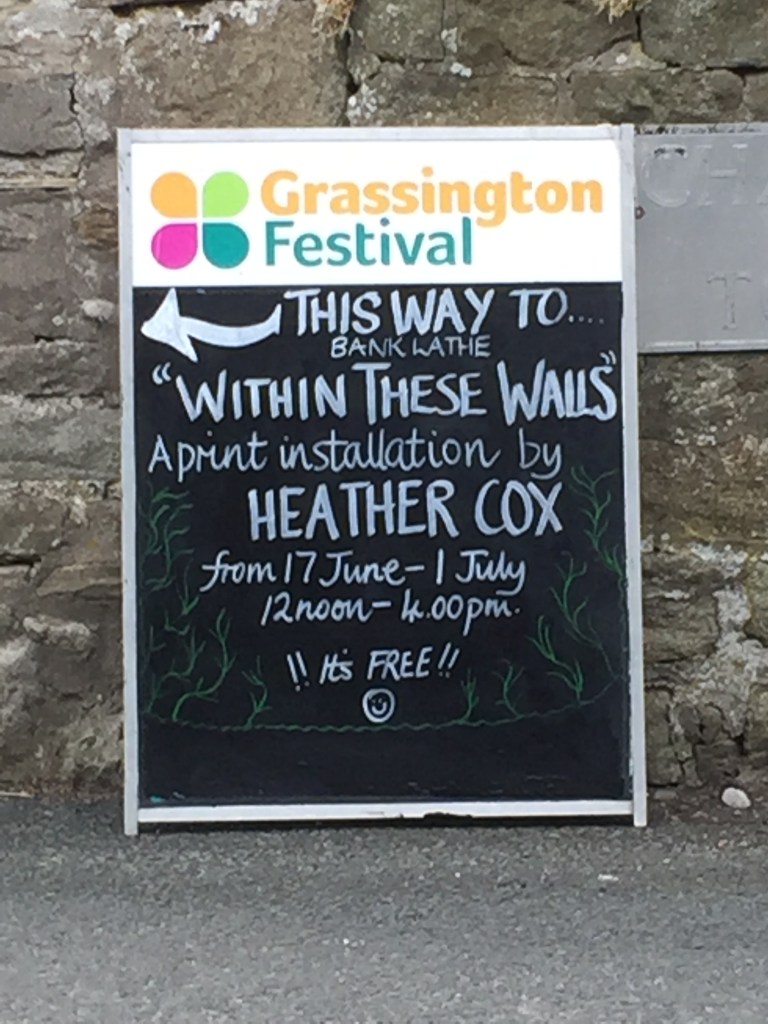 Grassington
Festival
THIS WAY TO....
BANK LATHE
"WITHIN THESE WALLS"
A print installation by
HEATHER COX
from 17 June - 1 July
12 noon - 4.00pm.
!! It's FREE !!